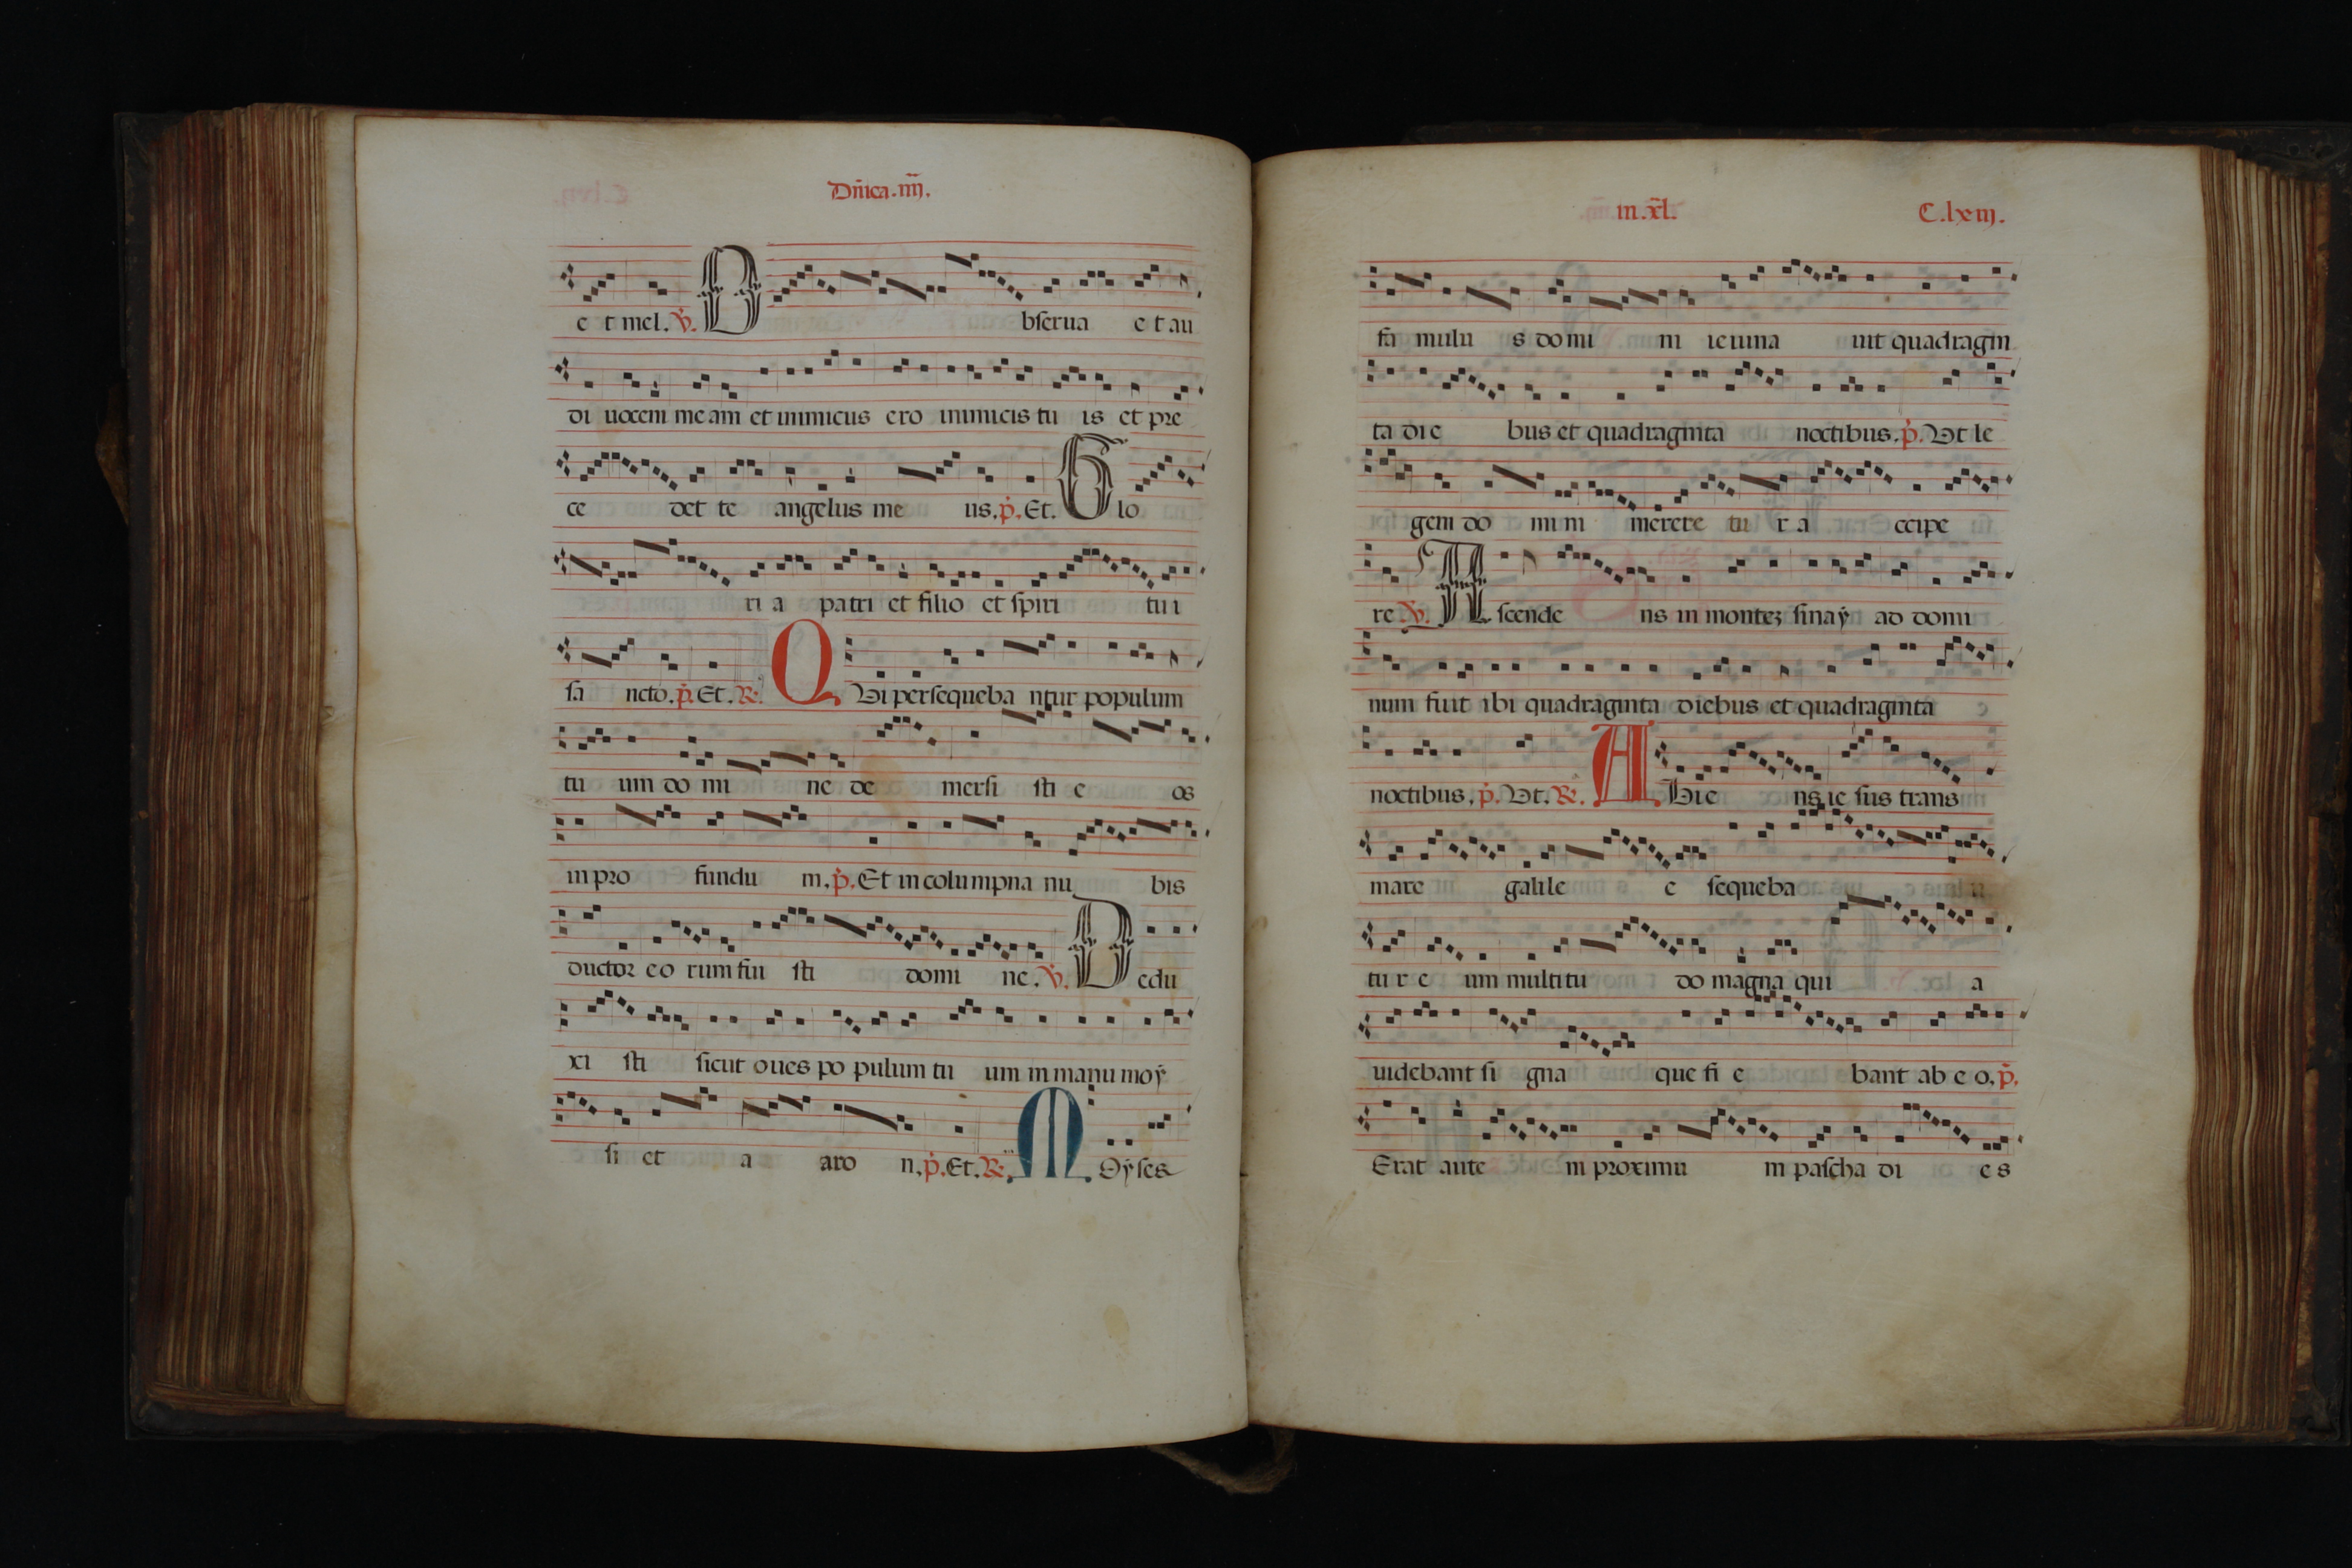 Dñica.iiij.
e t mel. V. O bserua e t au
di uocem me am et inimicus ero inimicis tu is et pre
ce det te angelus me us. p. Et. G lo
ri a patri et filio et spiri tui
sa ncto. p. Et. R. Q Vi persequeba ntur populum
tu um do mi ne de mersi sti e os
in pro fundu m. p. Et in columpna nu bis
ductor e o rum fui sti domi ne. V. D edu
xi sti sicut oues po pulum tu um in manu moÿ
si et a aro n. p. Et. R. M Oÿses
in.xl. C.lxiij.
fa mulu s domi ni ieiuna uit quadragin
ta die bus et quadraginta noctibus. p. Vt le
gem do mini merere tu r a ccipe
re V. A scende ns in montez sinaÿ ad domi
num fuit ibi quadraginta diebus et quadraginta
noctibus. p. Vt. R. A Bie ns ie sus trans
mare galile e sequeba
tu r e um multitu do magna qui a
uidebant si gna que fi e bant ab e o. p.
Erat aute m proximu m pascha di e s